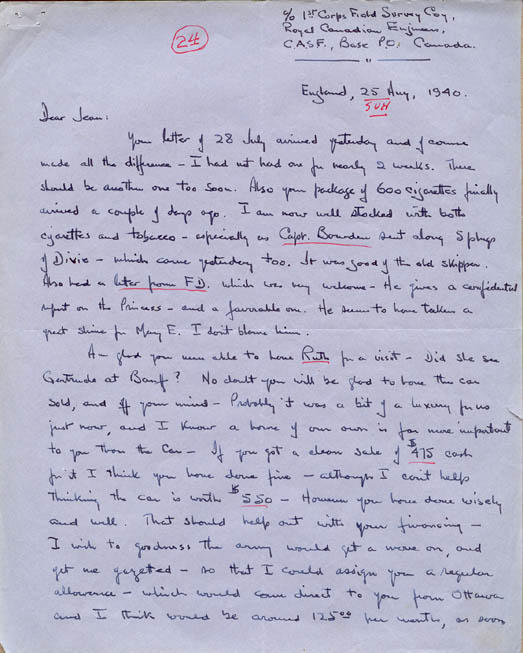 c/o 1st Corps Field Survey Coy,
Royal Canadian Engineers,
C.A.S.F., Base P.O. Canada.
24
England, 25 Aug, 1940.
SUN
Dear Jean:
Your letter of 28 July arrived yesterday and of course
made all the difference - I had not had one for nearly 2 weeks. There
should be another one too soon. Also your package of 600 cigarettes finally
arrived a couple of days ago. I am now well stocked with both
cigarettes and tobacco - especially as Capt. Bowden sent along 5 pkgs
of Dixie - which came yesterday too. It was good of the old skipper.
Also had a letter from F.D. which was very welcome - He gives a confidential
report on the Princess - and a favorable one. He seems to have taken a
great shine for Mary E. I don't blame him.
Am glad you were able to have Ruth for a visit - Did she see
Gertrude at Banff? No doubt you will be glad to have the car
sold, and off your mind - Probably it was a bit of a luxury for us
just now, and I know a home of our own is far more important
to you than the car - If you got a clean sale of $475 cash
for it I think you have done fine - although I can't help
thinking the car is worth $550 - However you have done wisely
and well. That should help out with your financing -
I wish to goodness the army would get a move on, and
get me gazeted - so that I could assign you a regular
allowance - which would come direct to you from Ottawa
and I think would be around 125.00 per month, as soon